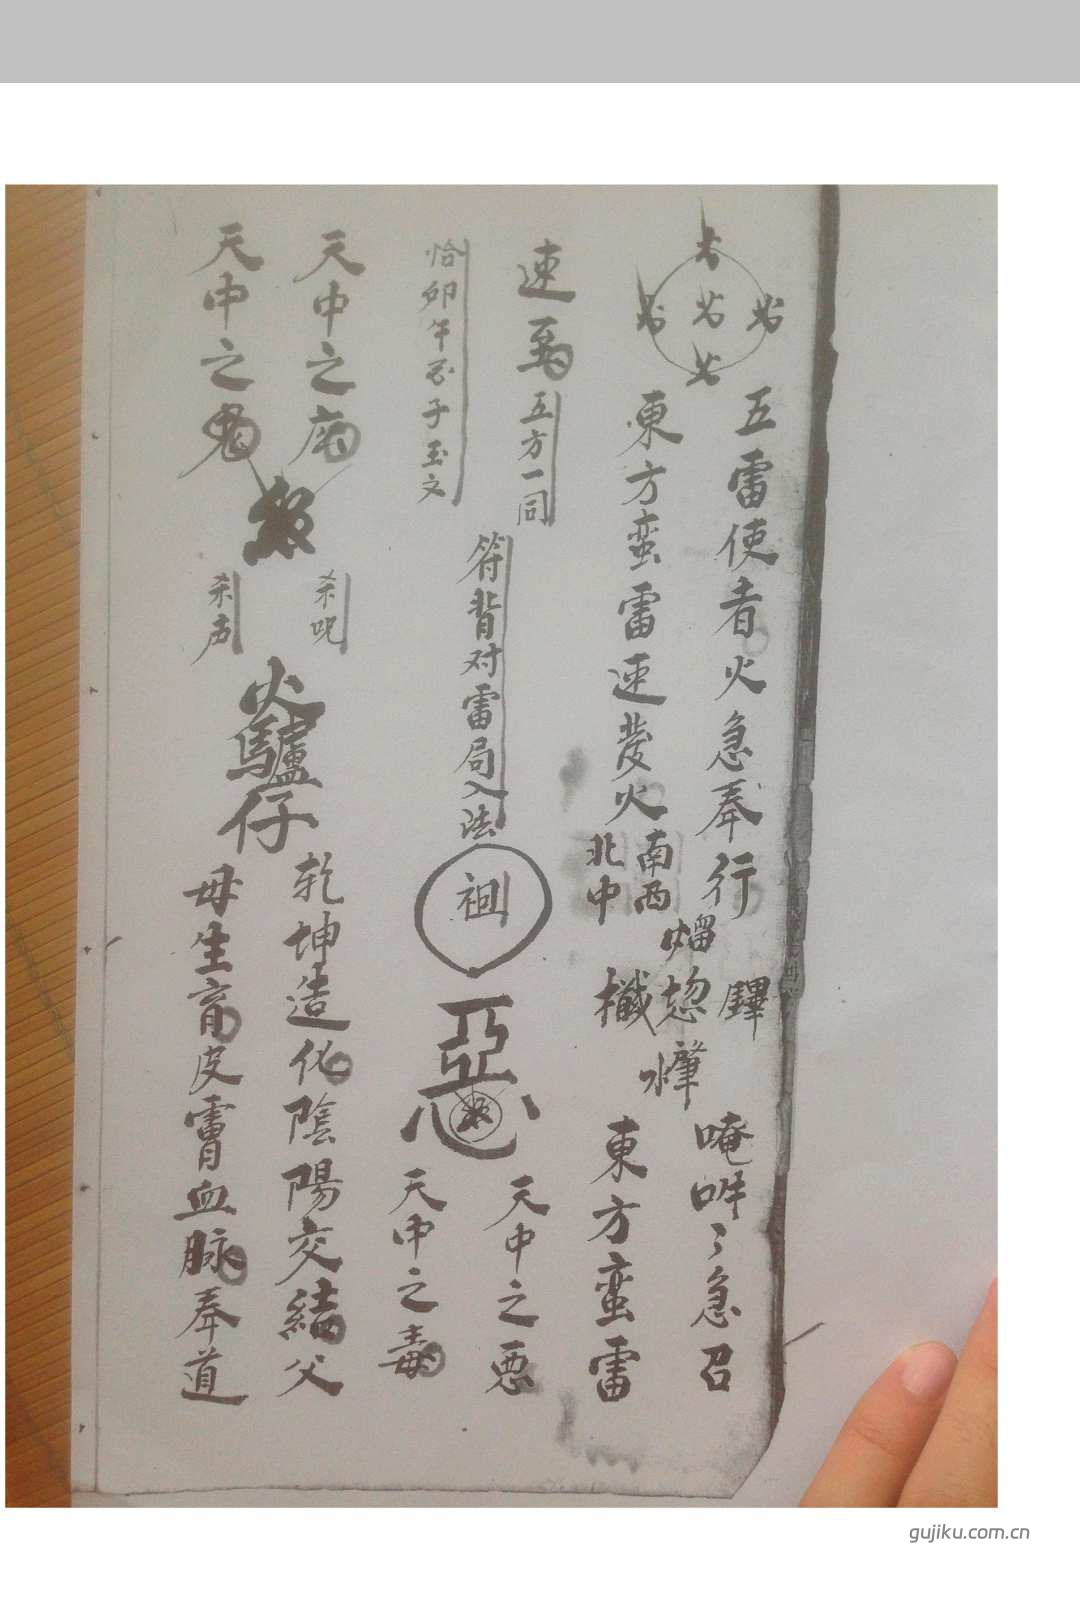 五雷使者火急奉行
東方蛮雷速發火
南西
北中
唵吽〻急召
東方蛮雷
速至
五方一同
恰卯午酉子玉文
符背对雷局入法
惡
天中之悪
天中之毒
天中之病
天中之鬼
殺
杀咒
杀声
火驢仔
乾坤造化陰陽交結父
母生育皮膚血脉奉道
gujiku.com.cn